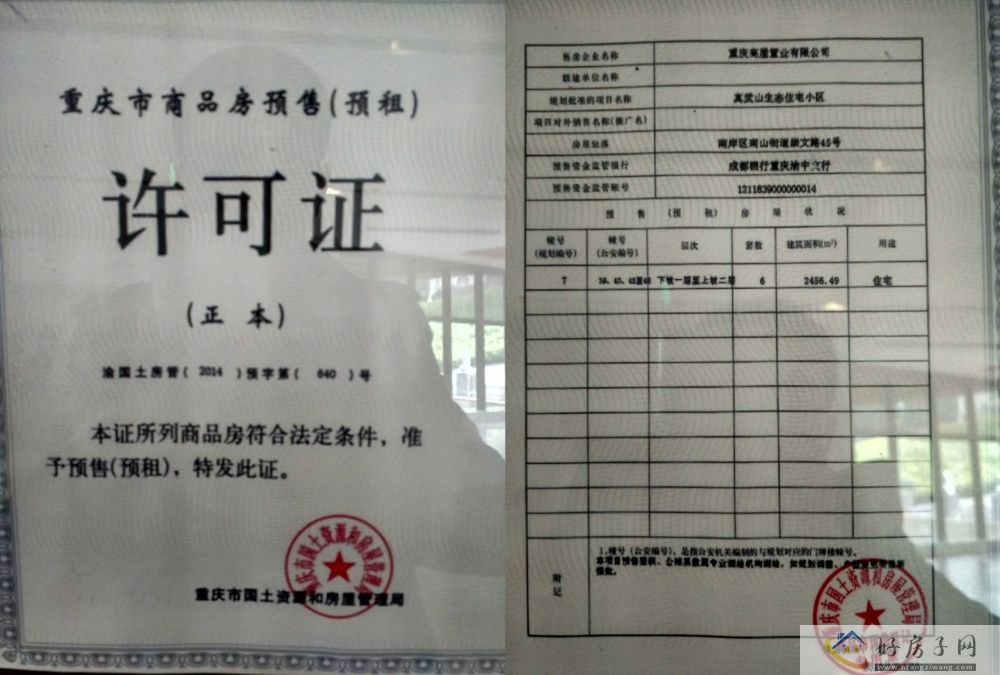 重庆市商品房预售(预租)
许可证
(正本)
渝国土房管( 2014 )预字第( 640 )号
本证所列商品房符合法定条件，准
予预售(预租)，特发此证。
重庆市国土资源和房屋管理局
重庆市国土资源和房屋管理局
售房企业名称 重庆高屋置业有限公司
联建单位名称
规划批准的项目名称 真武山生态住宅小区
项目对外销售名称(推广名)
房屋坐落 南岸区南山街道崇文路45号
预售资金监管银行 成都银行重庆渝中支行
预售资金监管账号 1211839000000014
预售(预租)房屋状况
幢号 幢号 层次 套数 建筑面积(m²) 用途
(规划编号) (公安编号)
7 39、40、45至48 下坡一层至上坡二层 6 2456.49 住宅
附记
1.幢号（公安编号），是指公安机关编制的与规划对应的门牌楼幢号。
本项目预售面积、公摊系数属专业测绘机构测绘，如规划调整、
重庆市国土资源和房屋管理局
好房子网